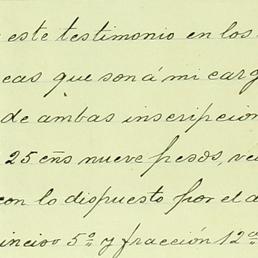 este testimonio en los
cas que son á mi carg
de ambas inscripcion
25 cño nueve pesos, ve
con lo dispuesto por el a
inciso 5º y fracción 12ª